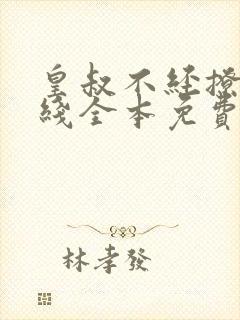 皇叔不经撩
綫全本免費
林孝發